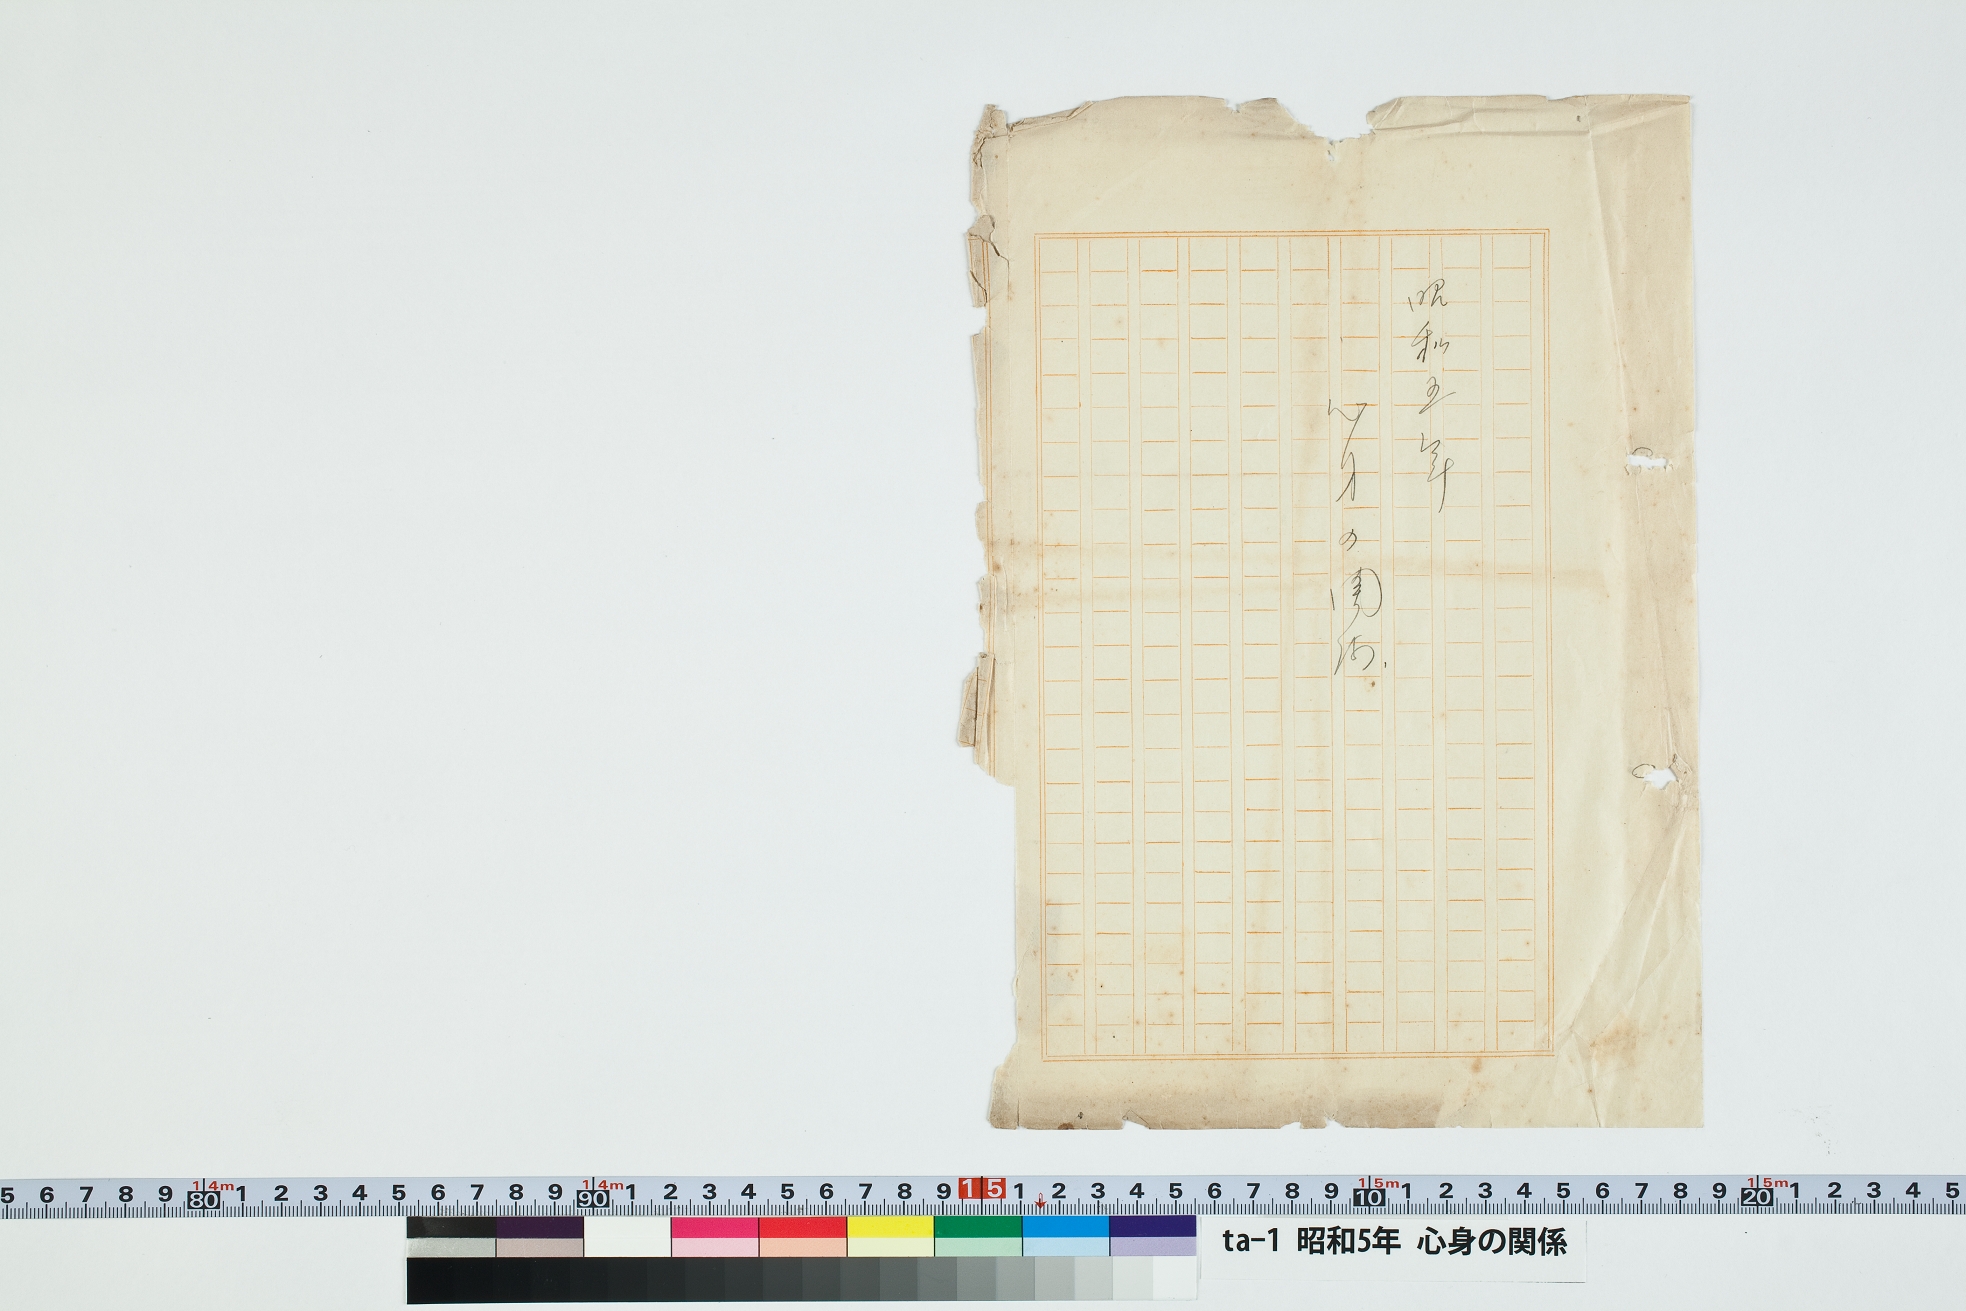 昭和五年
心身の関係.
5 6 7 8 9 14m 80 1 2 3 4 5 6 7 8 9 14m 90 1 2 3 4 5 6 7 8 9 15 1 2 3 4 5 6 7 8 9 15m 10 1 2 3 4 5 6 7 8 9 15m 20 1 2 3 4 5
ta-1 昭和5年 心身の関係